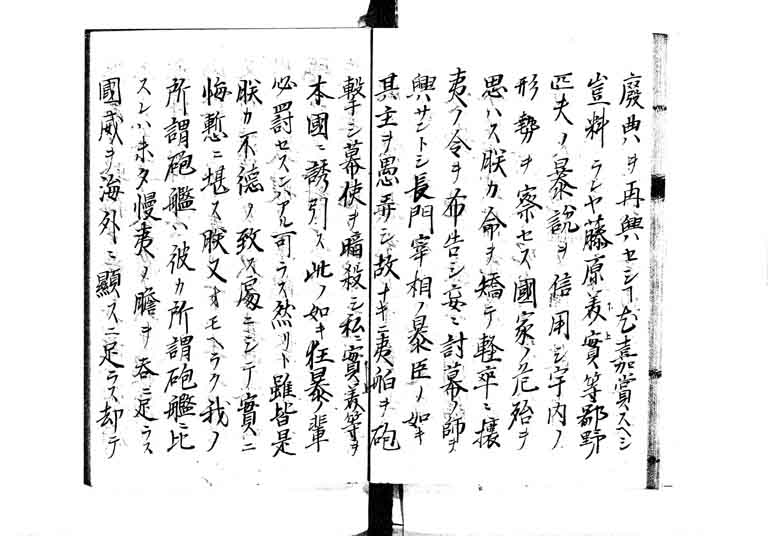 廢典ヲ再興セシヿ尤嘉賞スヘシ
豈料ランヤ藤原実美等鄙野
匹夫ノ暴説ヲ信用シ宇内ノ
形勢ヲ察セス國家ノ危殆ヲ
思ハス朕カ命ヲ矯テ軽卒ニ攘
夷ノ令ヲ布告シ妄ニ討幕ノ師ヲ
興サントシ長門宰相ノ暴臣ノ如キ
其主ヲ愚弄シ故ナキニ夷舶ヲ砲
撃シ幕使ヲ暗殺シ私ニ實美等ヲ
本國ニ誘引ス此ノ如キ狂暴ノ輩
必罰セスンハアル可ラス然リト雖皆是
朕カ不徳ノ致ス処ニシテ實ニ
悔慙ニ堪ス朕又オモヘラク我ノ
所謂砲艦ハ彼カ所謂砲艦ニ比
スレハ未タ慢夷ノ膽ヲ呑ニ足ラス
國威ヲ海外ニ顯スニ足ラス却テ